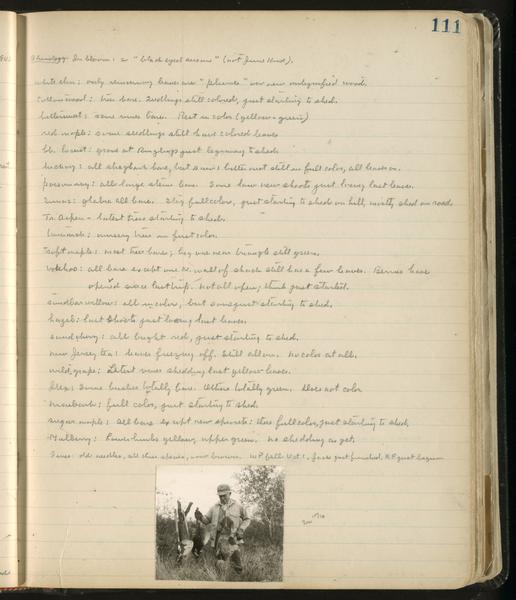 111
Phenology: In bloom: 2 "black eyed susans" (not June kind).
white elm: only remaining leaves are "plumes" on new undignified wood.
Cottonwood: tree bare. Seedlings still colored, just starting to shed.
butternut: some mines bare. Rest in color (yellow-green)
red maple: some seedlings still have colored leaves
bl. locust: grove at just beginning to shed.
hickory: all shagbark bare, but bitternut still in full color, all leaves on.
rosemary: all large stems bare. Some low new shoots just losing last leaves.
sumac: glabra all bare. Stag full color, just starting to shed on hill, mostly shed on roads
Tr. Aspen - latest trees starting to shed.
tamarack: nursery tree in first color.
Soft maples: most tree bare; big one near triangle still green.
Wahoo: all bare except one N. wall of shack still has a few leaves. Berries have
opened since last trip. Not all open; think just started.
sandbar willow: all in color, but some just starting to shed.
hazel: last shoots just losing last leaves.
sand cherry: all bright red, just starting to shed.
new Jersey tea: leaves freezing off. Still all on. No color at all.
wild grape: Latest vines shedding last yellow leaves.
Ilex: Some bushes totally bare. Others totally green. Does not color
ninebark: full color, just starting to shed.
sugar maple: All bare except new sprouts: these full color, just starting to shed.
Mulberry: Lower limbs yellow, upper green. No shedding as yet.
Pines: old needles, all three species, now brown. W.P. fall Oct 1, Jacks just finished, R.P. just begun